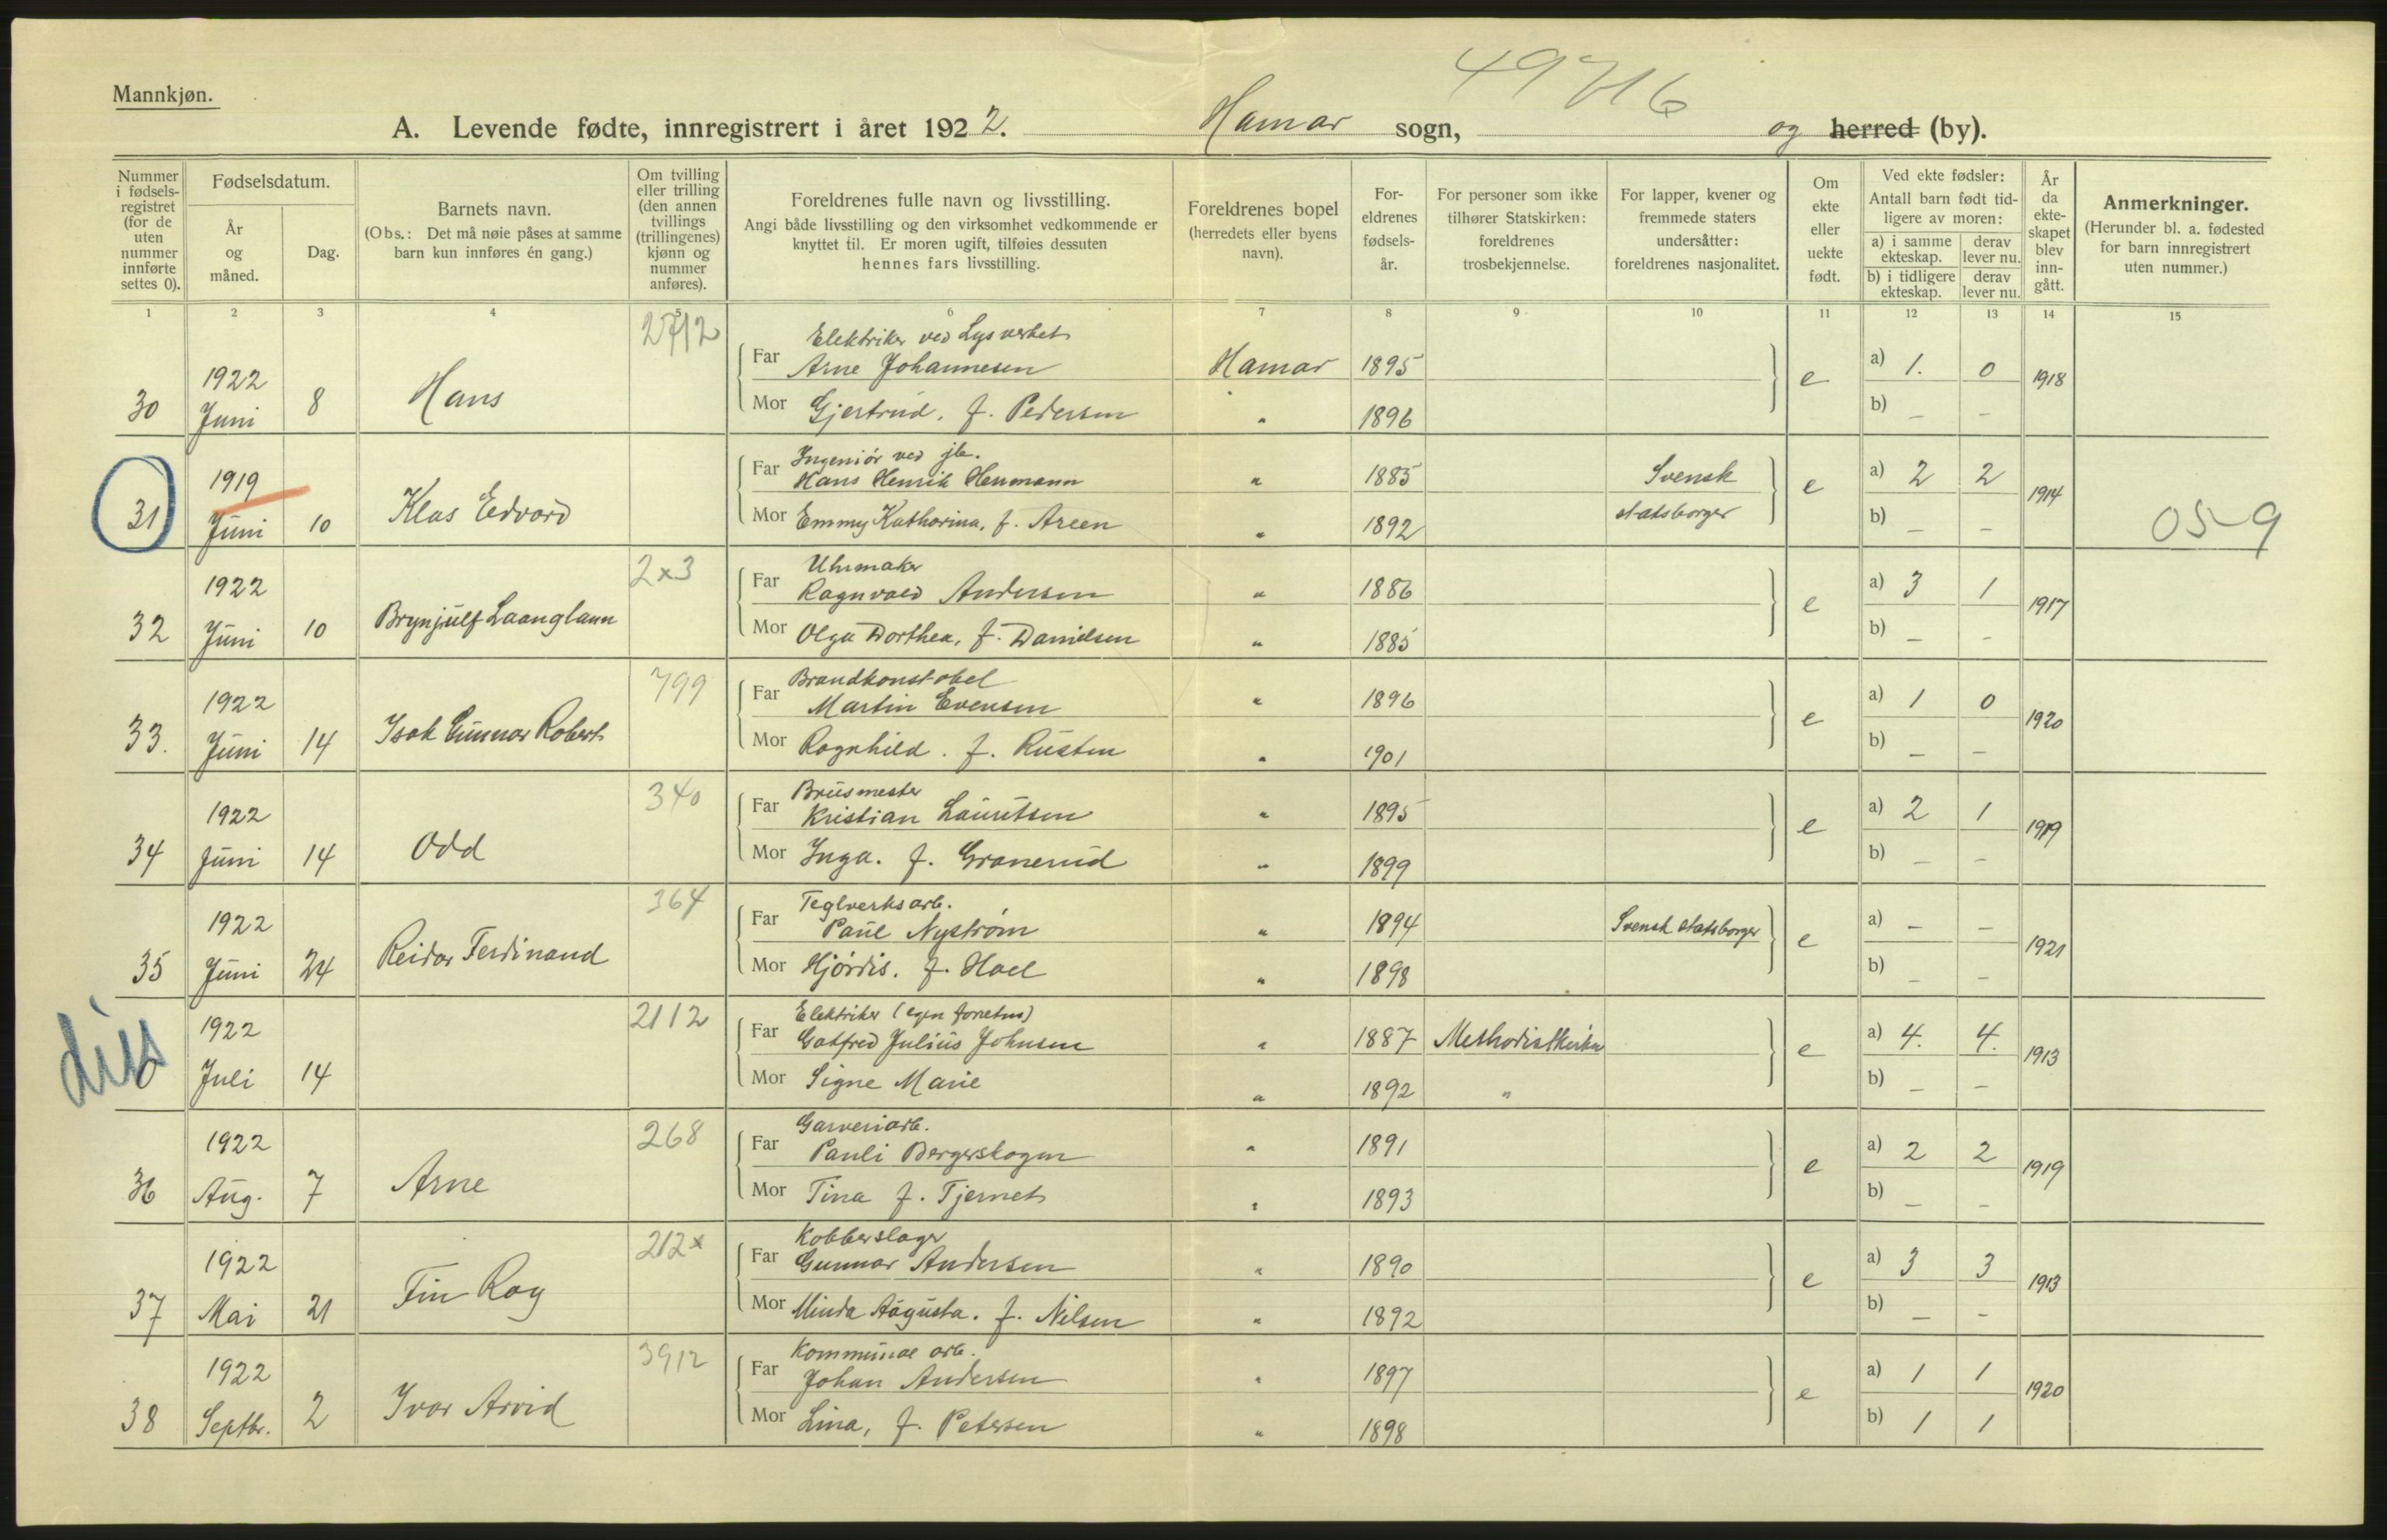 Mannkjøn.
49716
A. Levende fødte, innregistrert i året 1922. Hamar sogn, og herred (by).
Nummer i fødsels-registret (for de uten nummer innførte settes 0).
Fødselsdatum.
År og måned.
Dag.
Barnets navn.
(Obs.: Det må nøie påses at samme barn kun innføres én gang.)
Om tvilling eller trilling (den annen tvillings (trillingenes) kjønn og nummer anføres).
Foreldrenes fulle navn og livsstilling.
Angi både livsstilling og den virksomhet vedkommende er knyttet til. Er moren ugift, tilføies dessuten hennes fars livsstilling.
Foreldrenes bopel (herredets eller byens navn).
For-eldrenes fødsels-år.
For personer som ikke tilhører Statskirken: foreldrenes trosbekjennelse.
For lapper, kvener og fremmede staters undersåtter: foreldrenes nasjonalitet.
Om ekte eller uekte født.
Ved ekte fødsler: Antall barn født tid-ligere av moren:
a) i samme ekteskap. derav lever nu.
b) i tidligere ekteskap. derav lever nu.
År da ekte-skapet blev inn-gått.
Anmerkninger.
(Herunder bl. a. fødested for barn innregistrert uten nummer.)
1 2 3 4 5 6 7 8 9 10 11 12 13 14 15
2712
Elektriker ved Lysverket
Far Arne Johannesen Hamar 1895 a) 1. 0
30 1922 Juni 8 Hans e 1918
Mor Gjertrud, f. Pedersen " 1896 b) – –
Ingeniör ved jb.
Far Hans Henrik Hermann " 1885 Svensk a) 2 2
31 1919 Juni 10 Klas Edvard e 1914 059
Mor Emmy Katharina, f. Areen " 1892 statsborger b) – –
2x3
Uhrmaker
Far Ragnvald Andersen " 1886 a) 3 1
32 1922 Juni 10 Brynjulf Laanglann e 1917
Mor Olga Dorthea, f. Danielsen " 1885 b) – –
799
Brandkonstabel
Far Martin Evensen " 1896 a) 1 0
33. 1922 Juni 14 Isak Gunnar Robert e 1920
Mor Ragnhild. f. Rusten " 1901 b) – –
340
Far Kristian Lauritsen " 1895 a) 2 1
34 1922 Juni 14 Odd e 1919
Mor Inga. f. Granerud " 1899 b) – –
364
Teglverksarb.
Far Paul Nyström " 1894 Svensk statsborger a) – –
35 1922 Juni 24 Reidar Ferdinand e 1921
Mor Hjördis. f. Hoel " 1898 b) – –
2112
Elektriker (egen forretn)
Far Gotfred Julius Johnsen " 1887 Methodistkirken a) 4. 4.
0 1922 Juli 14 e 1913
Mor Signe Marie " 1892 " b) – –
268
Garveriarb.
Far Pauli Bergerskogen " 1891 a) 2 2
36 1922 Aug. 7 Arne e 1919
Mor Tina f. Tjernet " 1893 b) – –
212x
Kobberslager
Far Gunnar Andersen " 1890 a) 3 3
37 1922 Mai 21 Fin Roy e 1913
Mor Minda Augusta. f. Nilsen " 1892 b) – –
3912
Kommunal arb.
Far Johan Andersen " 1897 a) 1 1
38 1922 Septbr. 2 Ivar Arvid e 1920
Mor Lina, f. Petersen " 1898 b) 1 1